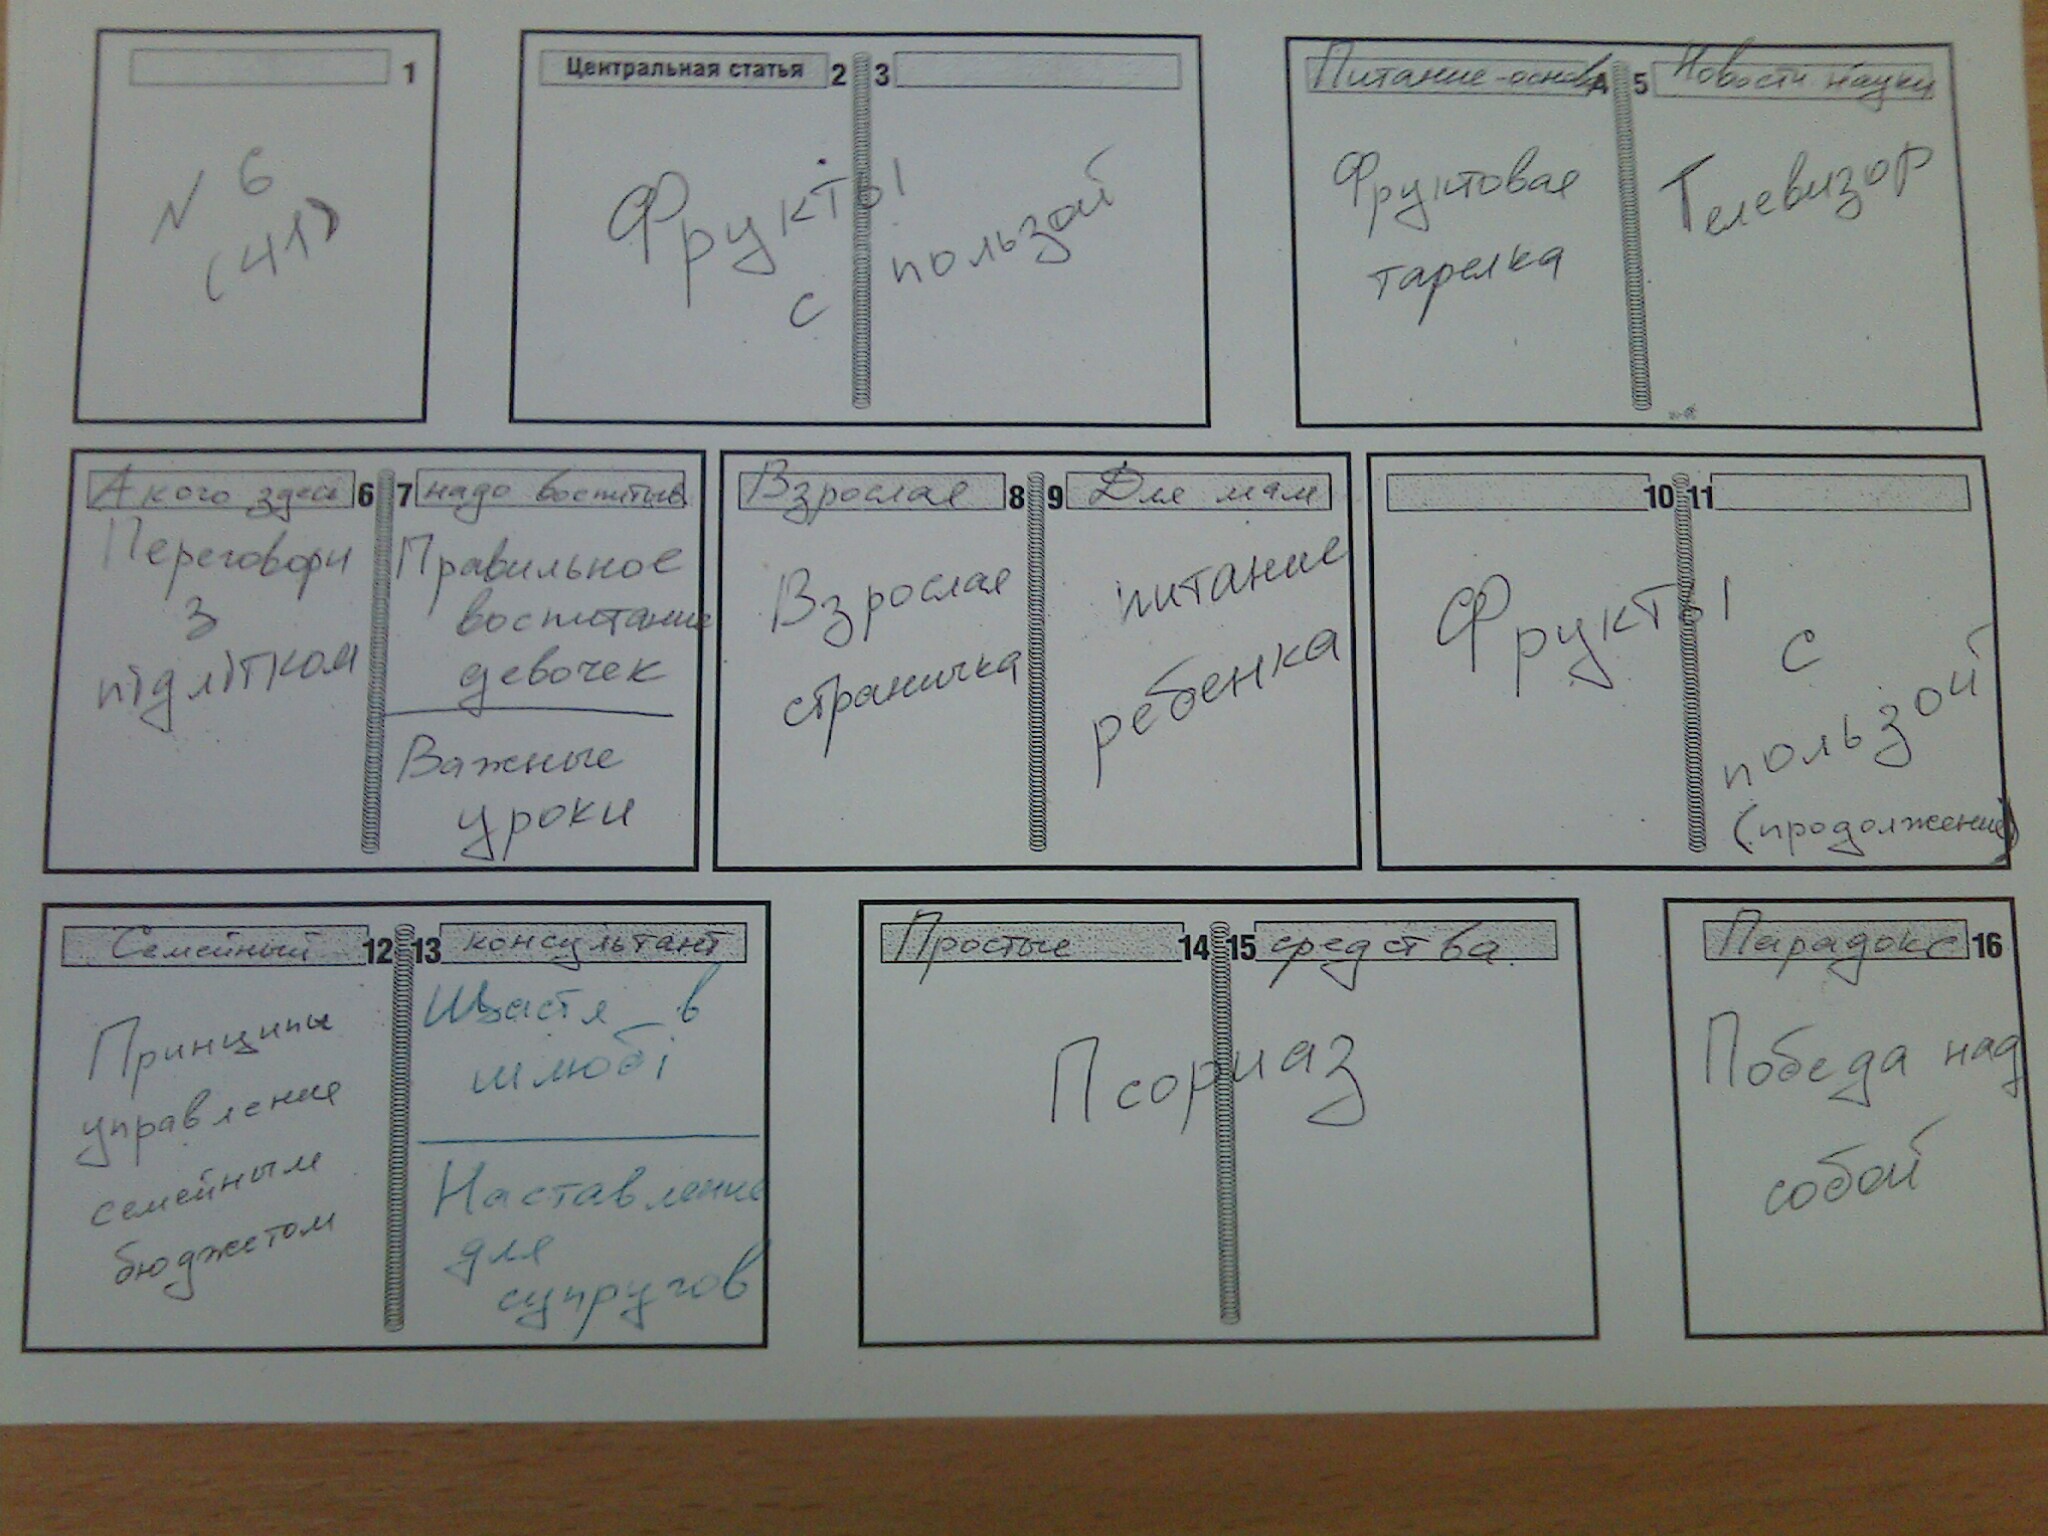 1
№ 6
(41)
Центральная статья 2 3
Фрукты
с пользой
Питание-основа 5 Новости науки
Фруктовая
тарелка
Телевизор
А кого здесь 6 7 надо воспитыв
Переговори
з
підлітком
Правильное
воспитание
девочек
Важные
уроки
Взрослая 8 9 Для мам
Взрослая
страничка
питание
ребенка
10 11
Фрукты
с
пользой
(продолжение)
Семейный 12 13 консультант
Принципы
управление
семейным
бюджетом
Щастя в
шлюбі
Наставление
для
супругов
Простые 14 15 средства.
Псориаз
Парадокс 16
Победа над
собой